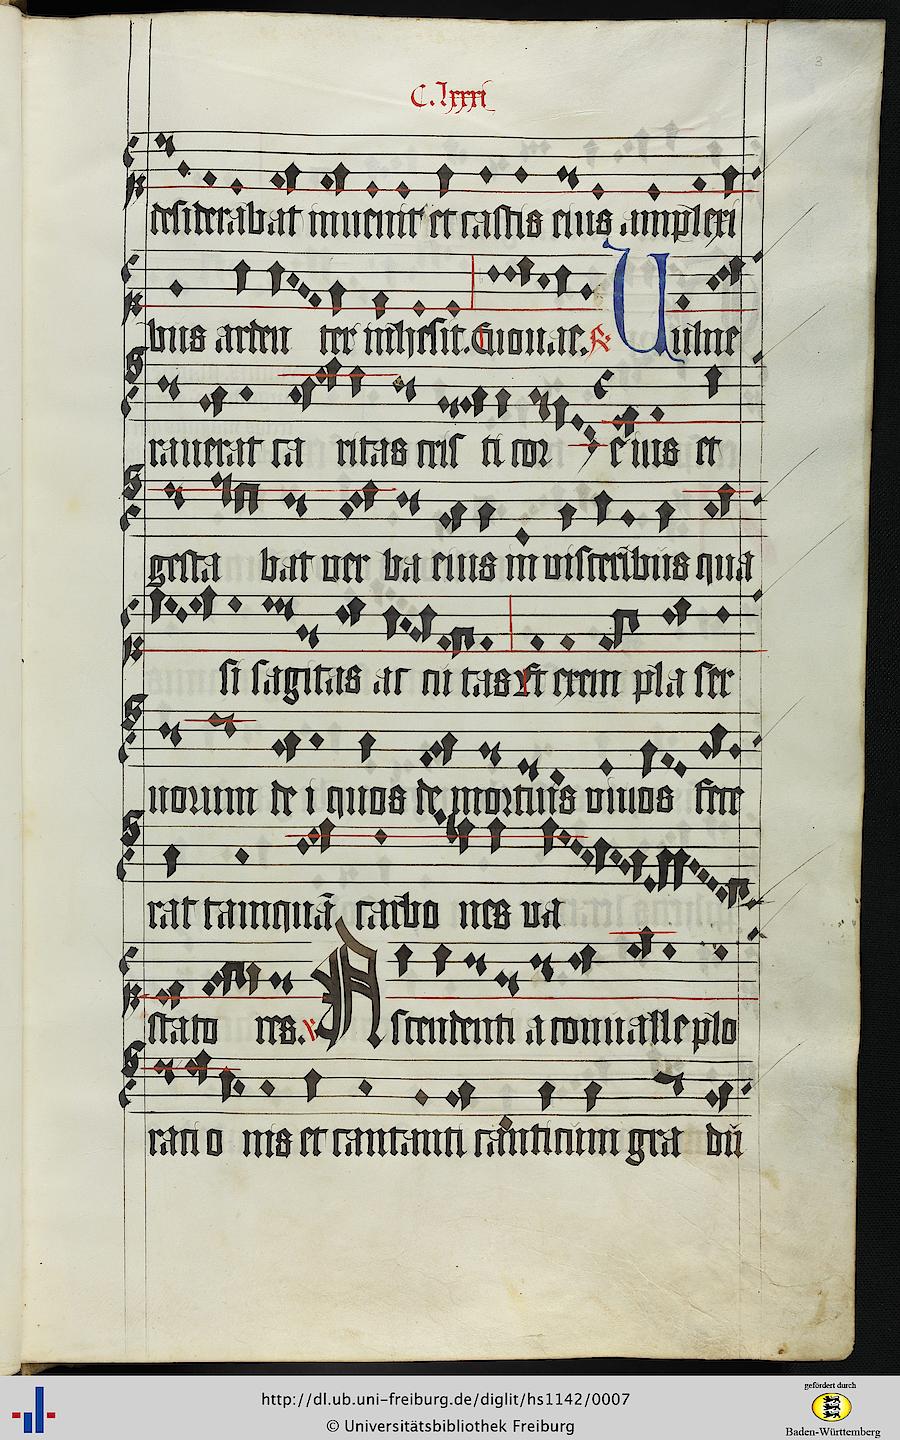 C.lxxxi
3
desiderabat inuenit et castis eius amplexi
bus arden ter inhesit. Euouae. R Uulne
rauerat ca ritas cris ti cor e ius et
gesta bat uer ba eius in uisceribus qua
si sagitas ac cu tas Et exem pla ser
uorum de i quos de mortuis uiuos fece
rat tamquā carbo nes ua
stato res. V Ascendenti a conualle plo
rati o nis et cantanti canticum gra dū
http://dl.ub.uni-freiburg.de/diglit/hs1142/0007
© Universitätsbibliothek Freiburg
gefördert durch
Baden-Württemberg